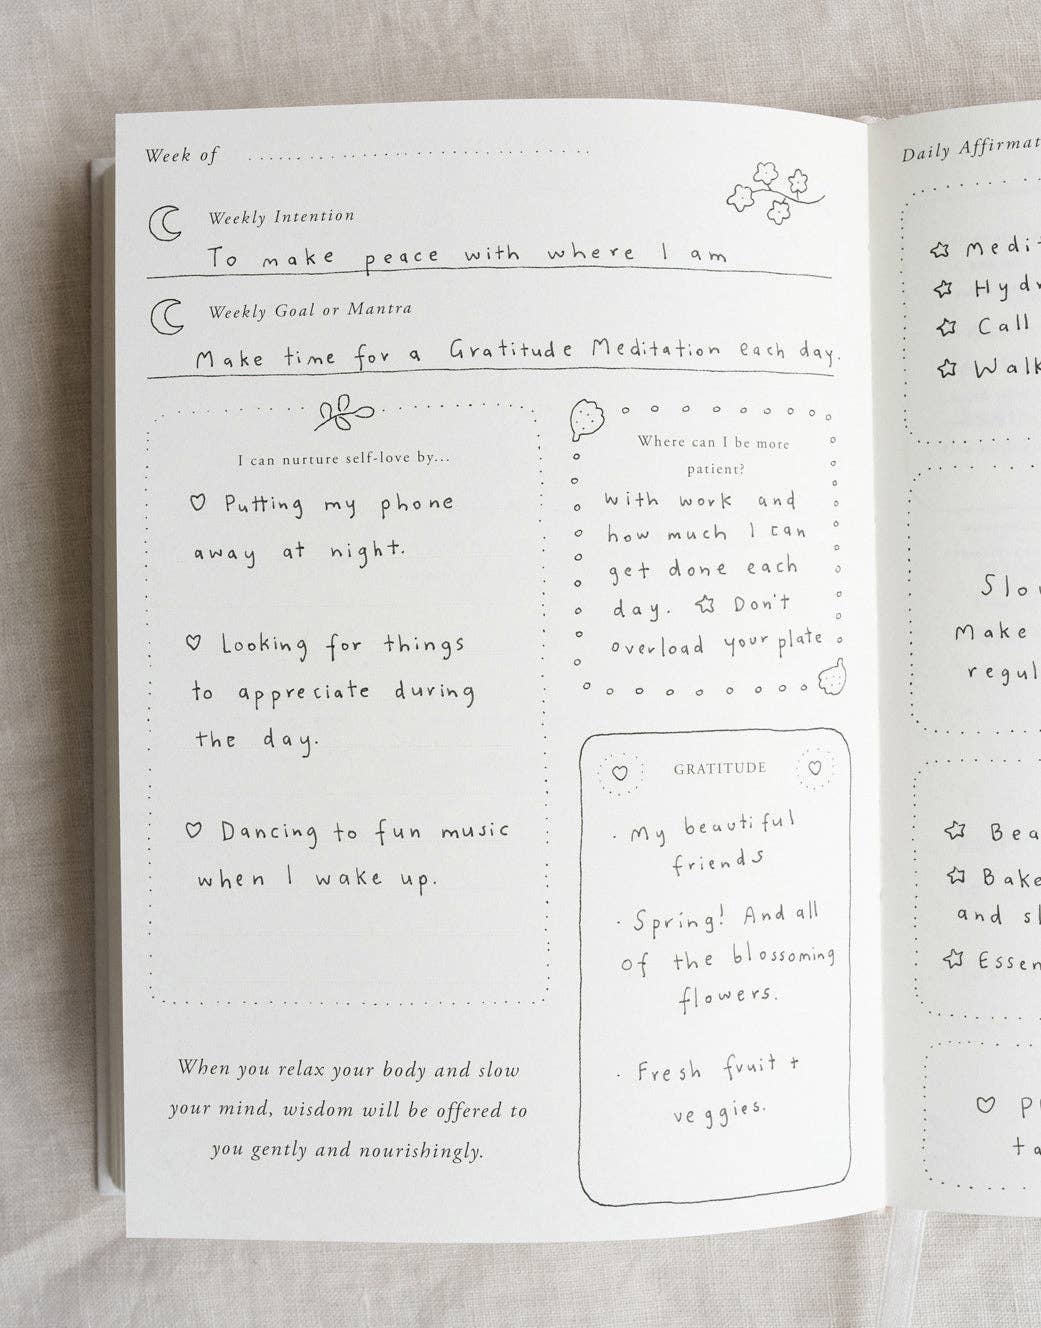 Week of
Weekly Intention
To make peace with where I am
Weekly Goal or Mantra
Make time for a Gratitude Meditation each day.
I can nurture self-love by...
Putting my phone
away at night.
Looking for things
to appreciate during
the day.
Dancing to fun music
when I wake up.
When you relax your body and slow
your mind, wisdom will be offered to
you gently and nourishingly.
Where can I be more
patient?
with work and
how much I can
get done each
day. ☆ Don't
overload your plate
GRATITUDE
· My beautiful
friends
· Spring! And all
of the blossoming
flowers.
· Fresh fruit +
veggies.
Daily
Call
Make
and